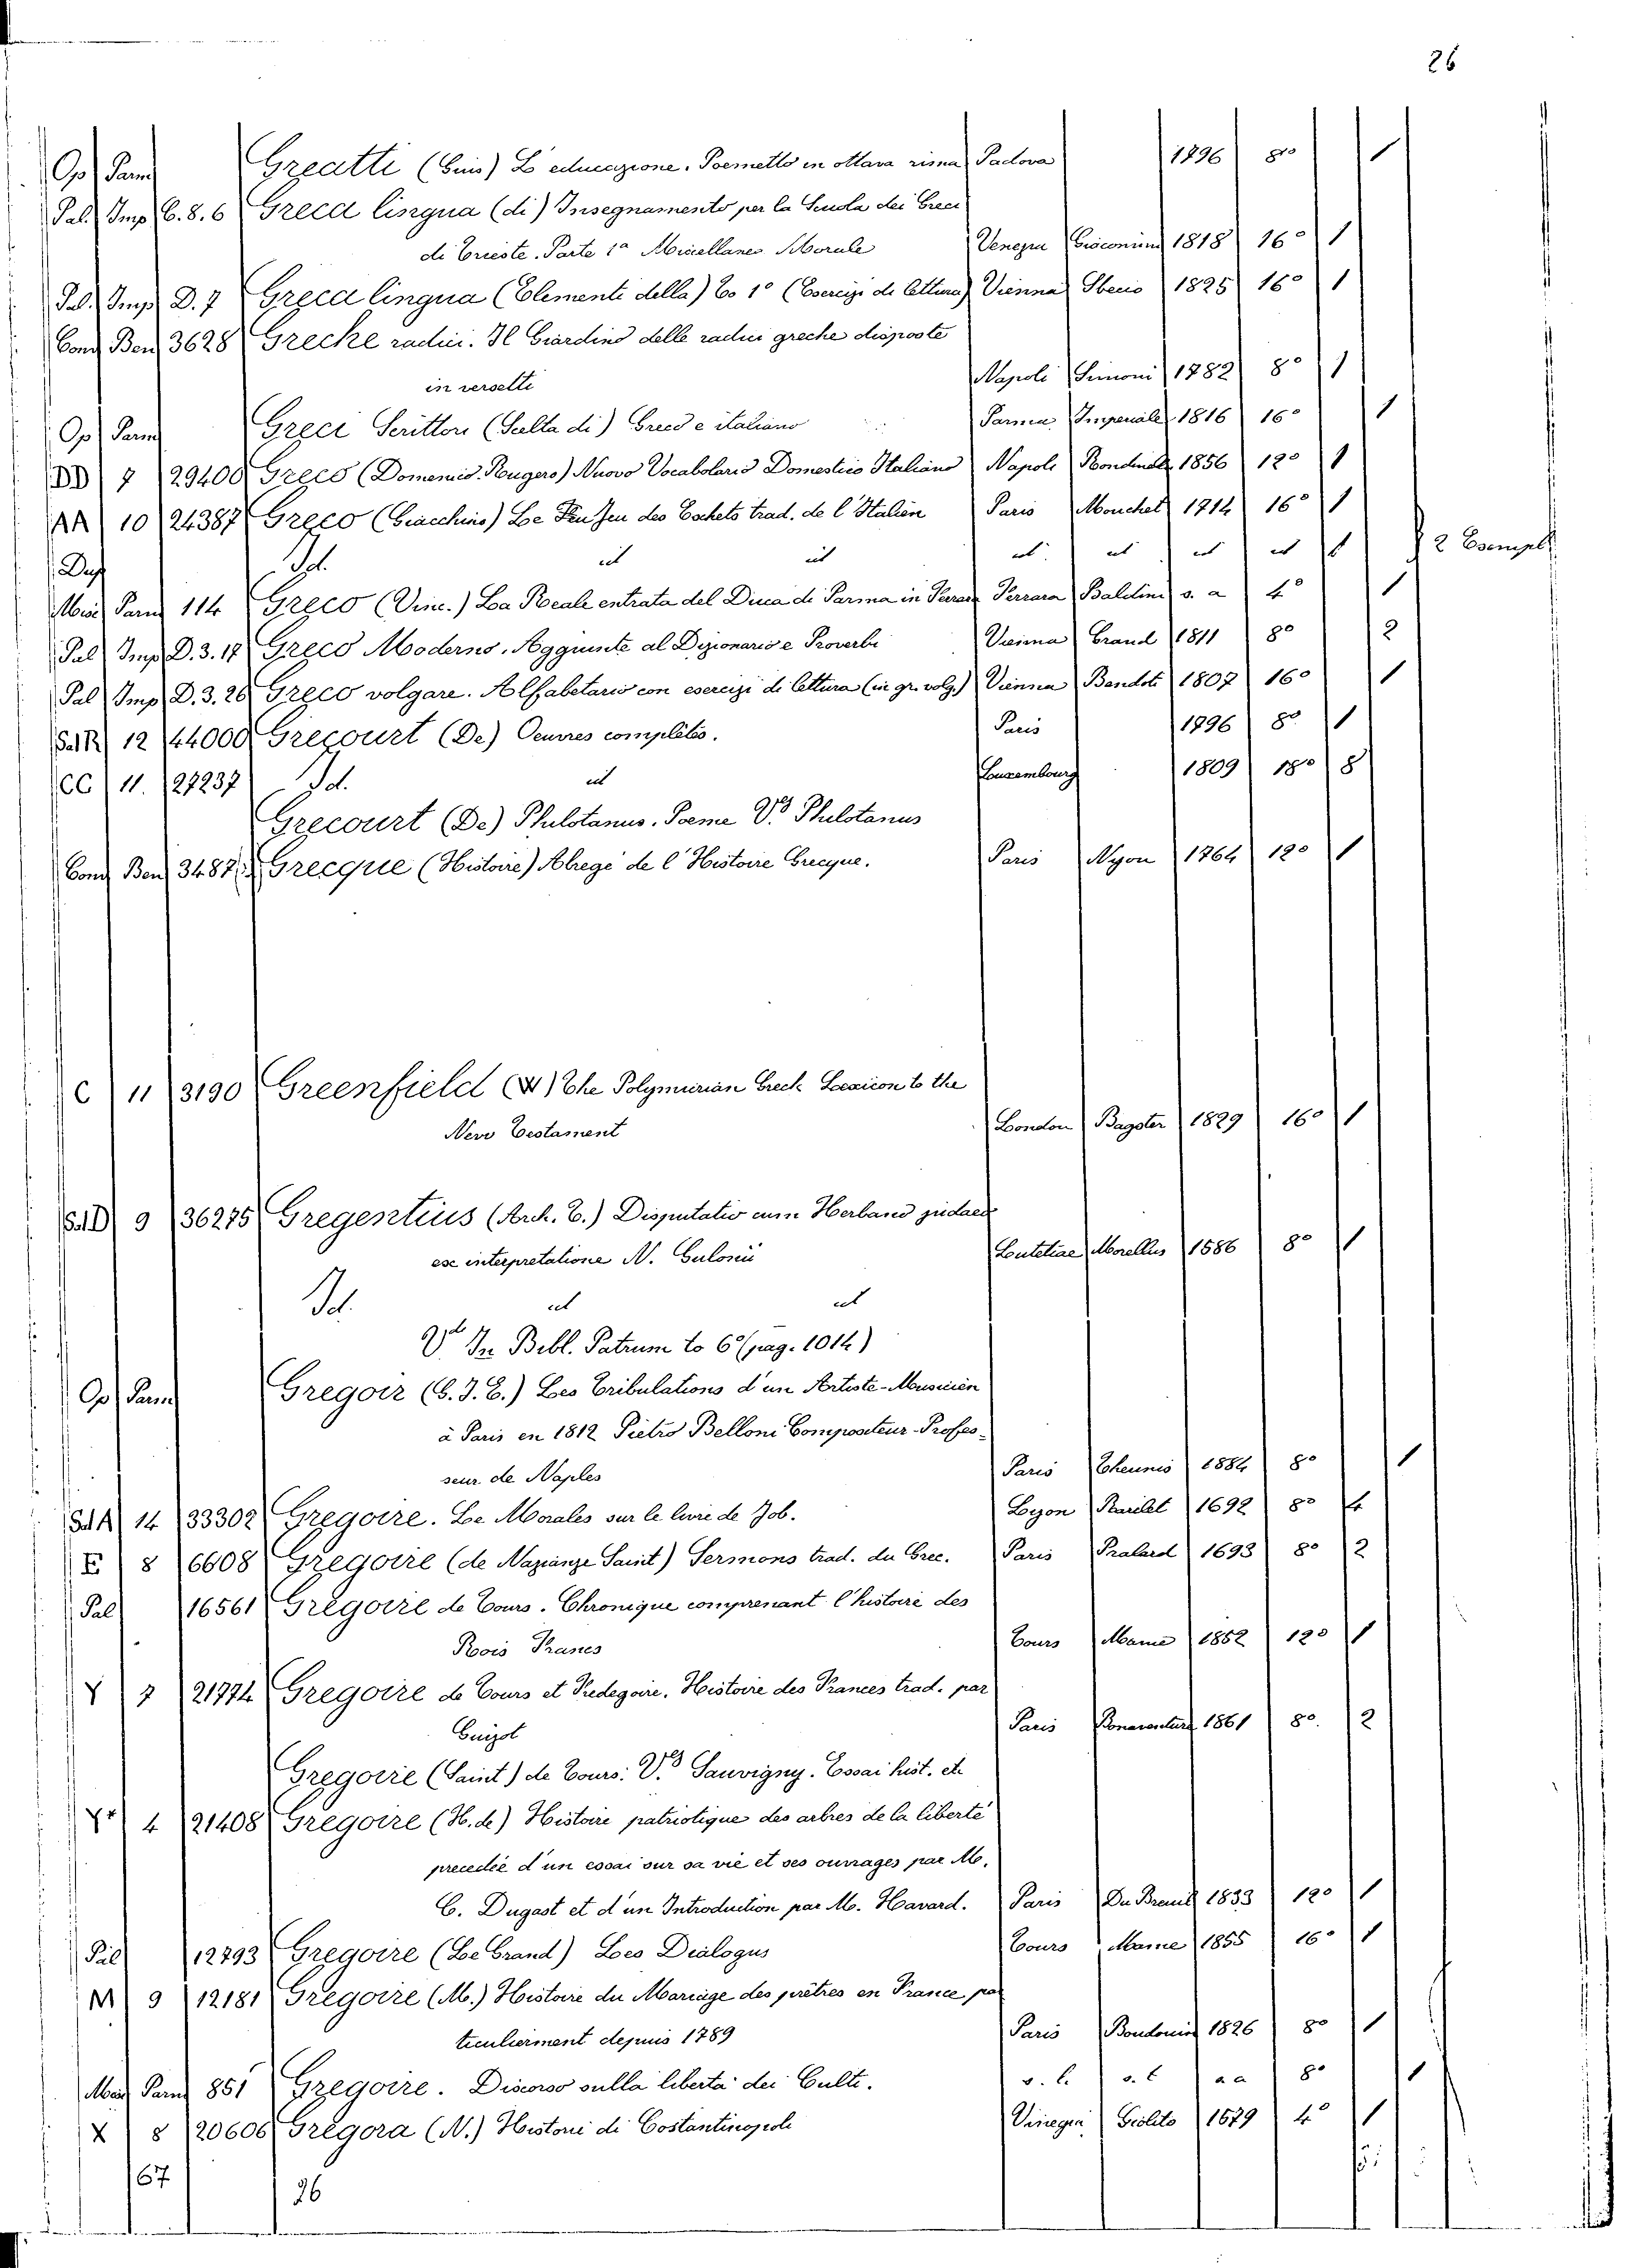 26
Op Parm Greatti (Gius) L'educazione. Poemetto in ottava rima Padova 1796 8º 1
Pal. Imp C. 8. 6 Greca lingua (di) Insegnamento per la Scuola dei Greci
di Trieste. Parte 1ª Miscellanea Morale Venezia 1818 16º 1
Pal. Imp D. 7 Greca lingua (Elementi della) To 1º (Esercizi di lettura) Vienna 1825 16º 1
Con Ben 3628 Greche radici. Il Giardino delle radici greche disposte
in versetti Napoli Simoni 1782 8º 1
Op Parm Greci Scrittori (Scelta di) Greco e italiano Parma Imperiale 1816 16º 1
DD 7 29400 Greco (Domenico Rugero) Nuovo Vocabolario Domestico Italiano Napoli 1856 12º 1
AA 10 24387 Greco (Giacchino) Le Jeu des Echets trad. de l'Italien Paris Mouchet 1714 16º 1
Dup Id. ut ut ut ut ut ut 1 2 Esempl
Misc Parm 114 Greco (Vinc.) La Reale entrata del Duca di Parma in Ferrara Ferrara Baldini s. a 4º 1
Pal Imp D. 3. 17 Greco Moderno. Aggiunte al Dizionario e Proverbi Vienna 1811 8º 2
Pal Imp D. 3. 26 Greco volgare. Alfabetario con esercizi di lettura (in gr. volg.) Vienna Bendoti 1807 16º 1
Sal R 12 44000 Grecourt (De) Oeuvres completes. Paris 1796 8º 1
CC 11. 27237 Id. ut Luxembourg 1809 18º 8
Grecourt (De) Philotanus. Poeme Vº Philotanus
Con Ben 3487 Grecque (Histoire) Abregé de l'Histoire Grecque. Paris Nyon 1764 12º 1
C 11 3190 Greenfield (W) The Polymicrian Greek Lexicon to the
New Testament London Bagster 1829 16º 1
Sal D 9 36275 Gregentius (Arch. T.) Disputatio cum Herbano judaeo
ex interpretatione N. Gulonii Lutetiae Morellus 1586 8º 1
Id. ut ut
Vd In Bibl. Patrum to 6º (pag. 1014)
Op Parm Gregoir (E. J. E.) Les Tribulations d'un Artiste-Musicien
à Paris en 1812 Pietro Belloni Compositeur-Profes-
seur de Naples Paris 1884 8º 1
Sal A 14 33302 Gregoire. Le Morales sur le livre de Job. Lyon 1692 8º 4
E 8 6608 Gregoire (de Nazianze Saint) Sermons trad. du Grec. Paris Pralard 1693 8º 2
Pal 16561 Gregoire de Tours. Chronique comprenant l'histoire des
Rois Francs Tours Mame 1852 12º 1
Y 7 21774 Gregoire de Tours et Fredegoire. Histoire des Francs trad. par
Guizot Paris Bonaventure 1861 8º. 2
Gregoire (Saint) de Tours: Vº Sauvigny. Essai hist. etc
Yº 4 21408 Gregoire (H. de) Histoire patriotique des arbres de la liberté
precedée d'un essai sur sa vie et ses ouvrages par M.
C. Dugast et d'un Introduction par M. Havard. Paris 1833 12º 1
Pal 12793 Gregoire (Le Grand) Les Dialogus Tours Mame 1855 16º 1
M 9 12181 Gregoire (M.) Histoire du Mariage des prêtres en France par
ticulierment depuis 1789 Paris Baudouin 1826 8º 1
Misc Parm 851 Gregoire. Discorso sulla libertà dei Culti. s. l. s. t a a 8º 1
X 8 20606 Gregora (N.) Historie di Costantinopoli Vinegia Giolito 1579 4º 1
67
26